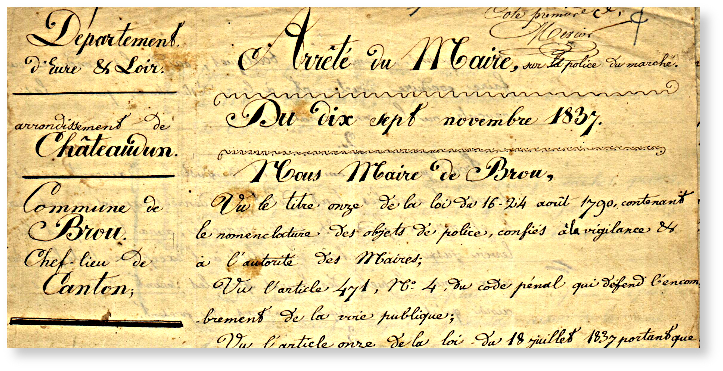 Département
d'Eure & Loir.
arrondissement de
Châteaudun.
Commune de
Brou
Chef-lieu de
Canton,
Cote première &.
Mercier
Arrêté du Maire, sur la police du marché.
Du dix sept novembre 1837.
Nous Maire de Brou,
Vu le titre onze de la loi du 16-24 août 1790, contenant
le nomenclature des objets de police, confiés à la vigilance &
à l'autorité des Maires;
Vu l'article 471, N° 4, du code pénal qui défend l'encom
brement de la voie publique;
Vu l'article onze de la loi du 18 juillet 1837 portant que